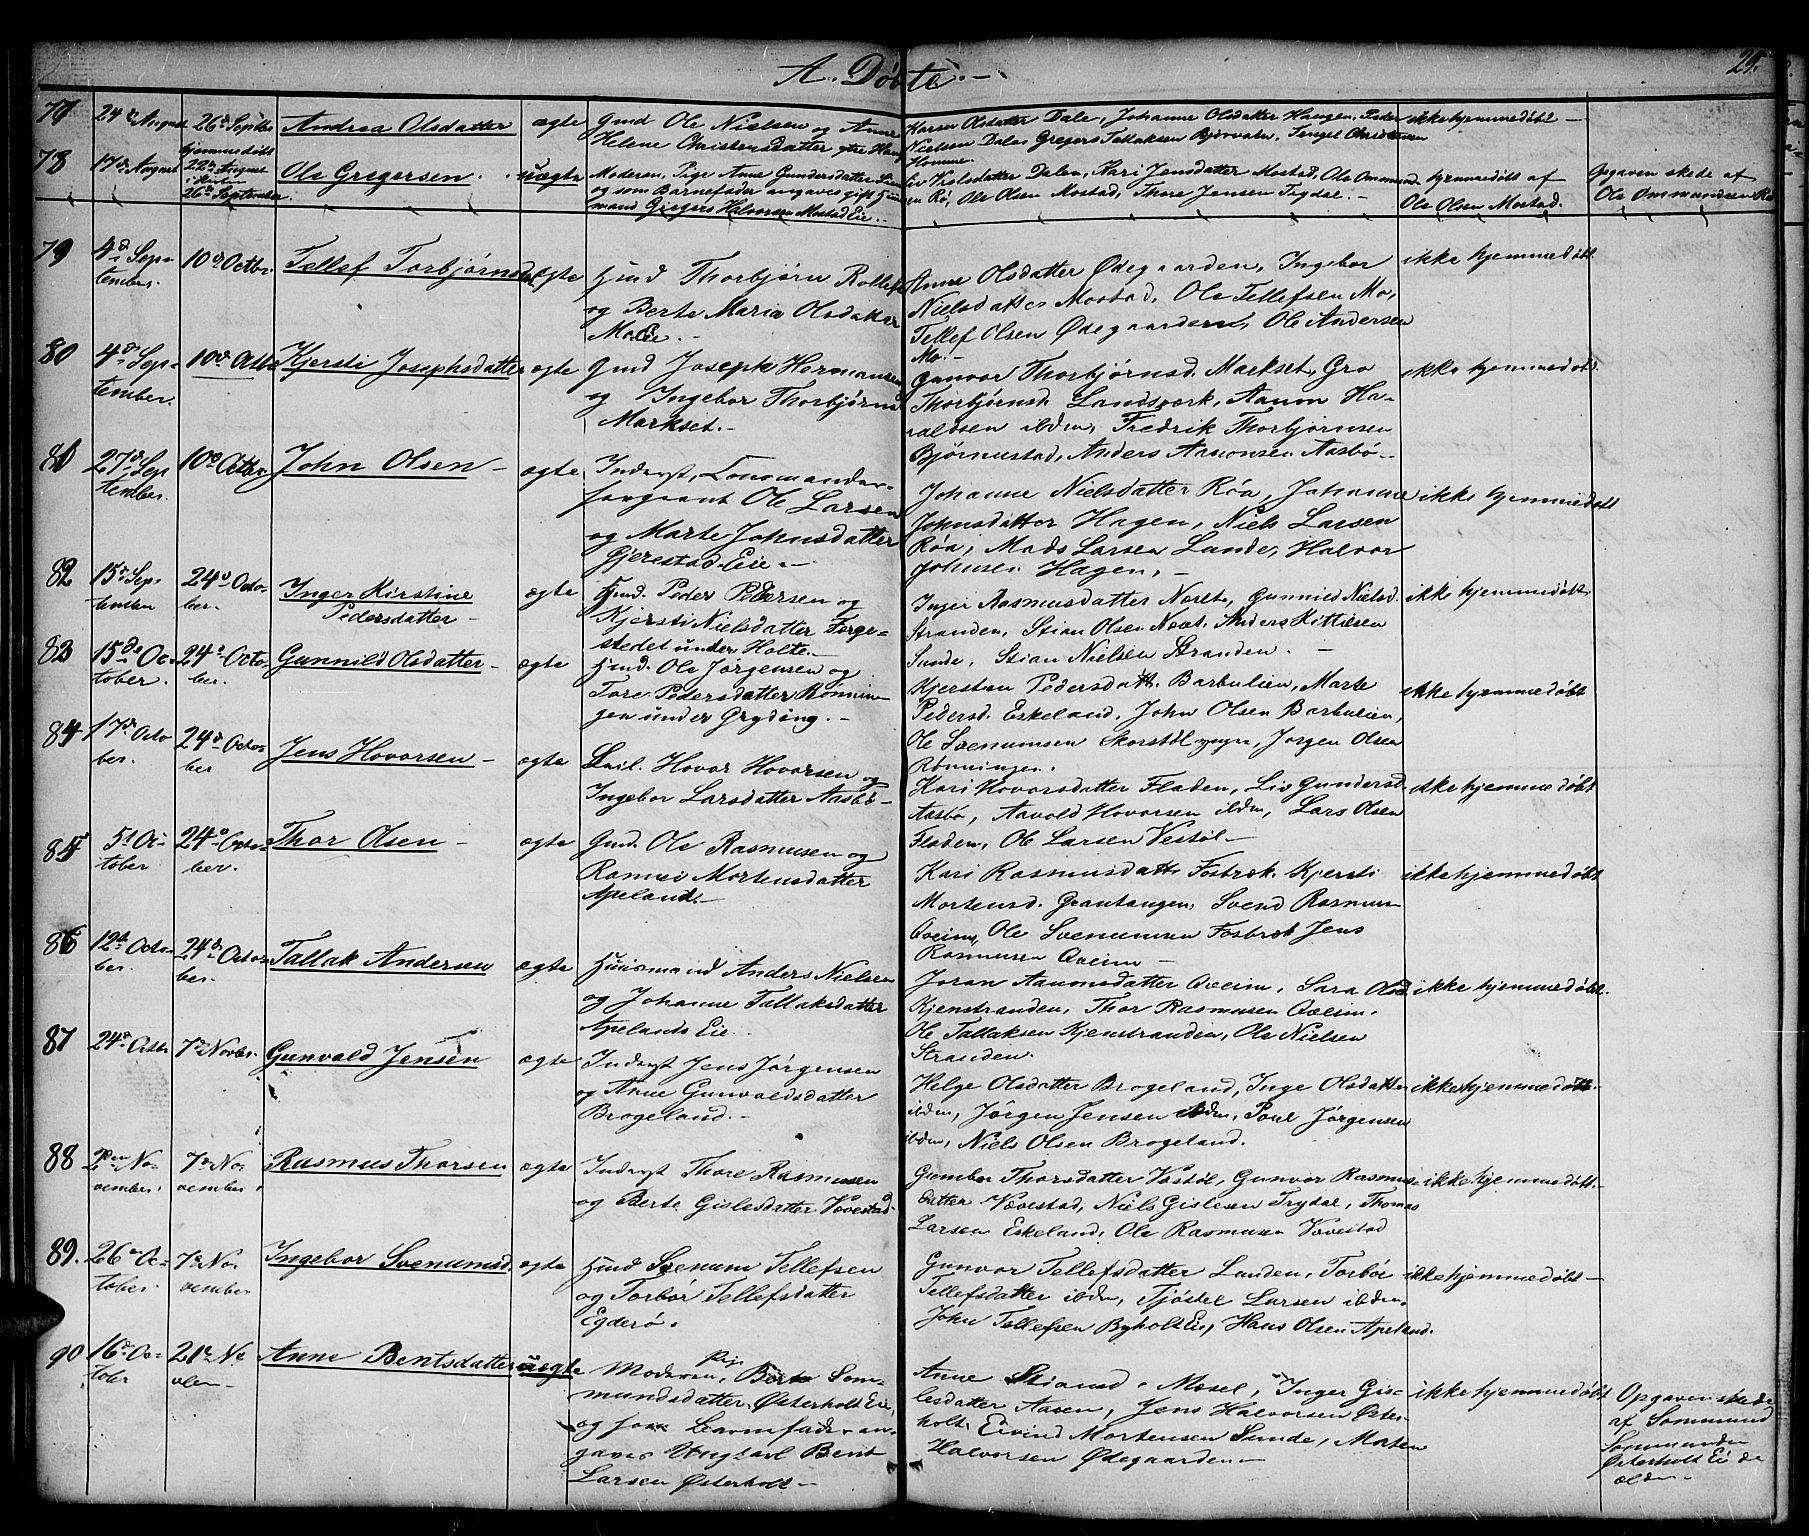 A. Døbte.
29.
77 24de August 26de Septbr Andrea Olsdatter ægte Gmd Ole Nielsen og Anne
Helene Christensdatter
Karen Olsdatter Dale, Johanne Olsdatter Haugen, Peder
Nielsen Dale, Gregers Tallaksen Bjorvatn, Tengel Christensen
Homme.
ikke hjemmedøbt -
78 17de August hjemmedøbt
22de August
26de September.
Ole Gregersen. uægte Moderen, Pige Anne Gundersdatter
og som Barnefader angaves gift Huus-
mand Gregers Halvorsen Mostad Eie.
Liv Nielsdatter Dalen, Kari Jensdatter Mostad, Ole Ommund-
sen Rø, Ole Olsen Mostad, Thore Jensen Trydal. -
hjemmedøbt af
Ole Olsen Mostad.
Opgaven skede af
Ole Ommundsen Rø
79 4de Sep-
tember. 10de Octbr. Tellef Torbjørns ægte Huusd Thorbjørn Rollefs
og Berte Maria Olsdatter
Mo Eie. -
Anne Olsdatter Ødegaarden, Ingebor
Nielsdatter Mostad, Ole Tellefsen Mo,
Tellef Olsen Ødegaarden, Ole Andersen
Mo. -
ikke hjemmedøbt
80 4de Sep-
tember. 10de Octbr Kjersti Josephsdatter ægte Gmd Joseph Hermansen
og Ingebor Thorbjørnsd
Markset. -
Gunvor Thorbjørnsd. Markset, Gro
Thorbjørnsd. Landsværk, Aanon Ha-
valdsen ibdm, Fredrik Thorbjørnsen
Bjørnustad, Anders Aanonsen Aasbø. -
ikke hjemmedøbt.
81 27de Sep
tember. 10de Octbr John Olsen - ægte Inderst, Commander-
sergeant Ole Larsen
og Marte Johnsdatter
Gjerestad Eie. -
Johanne Nielsdatter Røa, Johanne
Johnsdatter Hagen, Niels Larsen
Røa, Mads Larsen Lunde, Halvor
Johnsen Hagen, -
ikke hjemmedøbt
82 15de Sep-
tember 24de Octo-
ber. Inger Kirstine
Pedersdatter - ægte Hmd. Peder Pedersen og
Kjersti Nielsdatter Torge-
stedet under Holte. -
Inger Rasmusdatter Næret, Gunnild Nielsd.
Stranden, Stian Olsen Næret, Anders Kittilsen
Sunde, Stian Nielsen Stranden. -
ikke hjemmedøbt
83 15de Oc-
tober. 24de Octo-
ber. Gunnild Olsdatter - ægte Hmd. Ole Jørgensen og
Tore Pedersdatter Rønnin-
gen under Gryding. -
Kjersten Pedersdatt. Barbulien, Marte
Pedersd. Eskeland, John Olsen Barbulien,
Ole Svenumsen Skorstøl, Jørgen Olsen
Rønningen.
ikke hjemmedøbt
84 17de Octo
ber. 24de Octo-
ber Jens Hovorsen - ægte Hovor Hovorsen og
Ingebor Larsdatter Aasbø -
Kari Hovorsdatter Fladen, Liv Gundersd.
Aasbø, Aavold Hovorsen ibdm, Lars Olsen
Fladen, Ole Larsen Vestøl -
ikke hjemmedøbt
85 5te Oc-
tober 24de Octo-
ber. Thor Olsen - ægte Gmd. Ole Rasmusen og
Rannei Mortensdatter
Apeland. -
Kari Rasmusdatt. Fosbræk, Kjersti
Mortensd. Grantangen, Svend Rasmus
Qveim, Ole Svenumsen Fosbræk Jens
Rasmusen Qveim -
ikke hjemmedøbt
86 12te Octo-
ber. 24de Octo-
ber. Tallak Andersen ægte Huusmand Anders Nielsen
og Johanne Tallaksdatter
Apelands Eie.
Joran Aanonsdatter Qveim, Sara Olsd.
Kjenstranden, Thor Rasmusen Qveim,
Ole Tallaksen Kjenstranden, Ole Nielsen
Stranden.
ikke hjemmedøbt.
87 24de Octbr 7de Novbr. Gunvald Jensen ægte Inderst Jens Jørgensen
og Anne Gunvaldsdatter
Brogeland. -
Helge Olsdatter Brogeland, Inge Olsdatter
ibdm, Jørgen Jensen ibdm, Poul Jørgensen
ibdm, Niels Olsen Brogeland.
ikke hjemmedøbt.
88 2den No-
vember. 7de No-
vember. Rasmus Thorsen ægte Inderst Thore Rasmusen
og Berte Gislesdatter Vævestad
Giember Thorsdatter Vestøl, Gunvor Rasmus-
datter Vævestad, Niels Gislesen Trydal, Thomas
Larsen Eskeland, Ole Rasmusen Vævestad
ikke hjemmedøbt.
89. 26de Oc-
tober. 7de No-
vember Ingebor Svenumsd. ægte Hmd Svenum Tellefsen
og Torbør Tellefsdatter
Egderø.
Gunvor Tellefsdatter Lunden, Torbør
Tellefsdatter ibdm, Tjøstel Larsen ibdm,
John Tellefsen Byholt Eie, Hans Olsen Apeland.
ikke hjemmedøbt -
90 16de Oc-
tober 21de No
vbr - Anne Bentsdatter uægte Moderen, Pige Berte Som-
mundsdatter Østerholt Eie,
og som Barnefader an-
gaves Ungkarl Bent
Larsen Østerholt -
Anne Stiansd. Mosel, Inger Gis-
lesdatter Aasen, Jens Halvorsen Øster-
holt Eivind Mortensen Sunde, Morten
Halvorsen Ødegaarden -
ikke hjemmedøbt
Opgaven skede
af Sommund
Sommundsen
Østerholt Ei de
ælder -